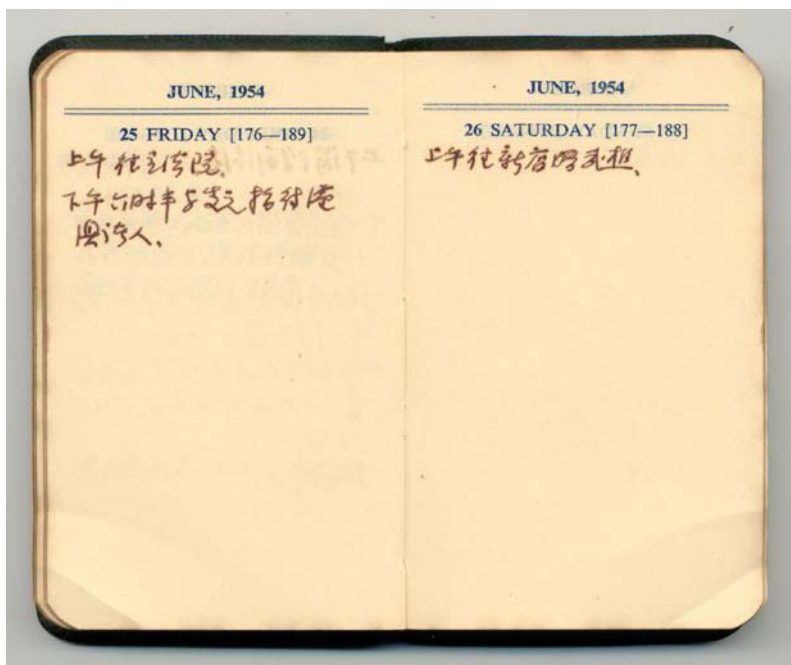 JUNE, 1954
25 FRIDAY [176—189]
上午往立法院、
下午六时半与 招待
人、
JUNE, 1954
26 SATURDAY [177—188]
上午往新店